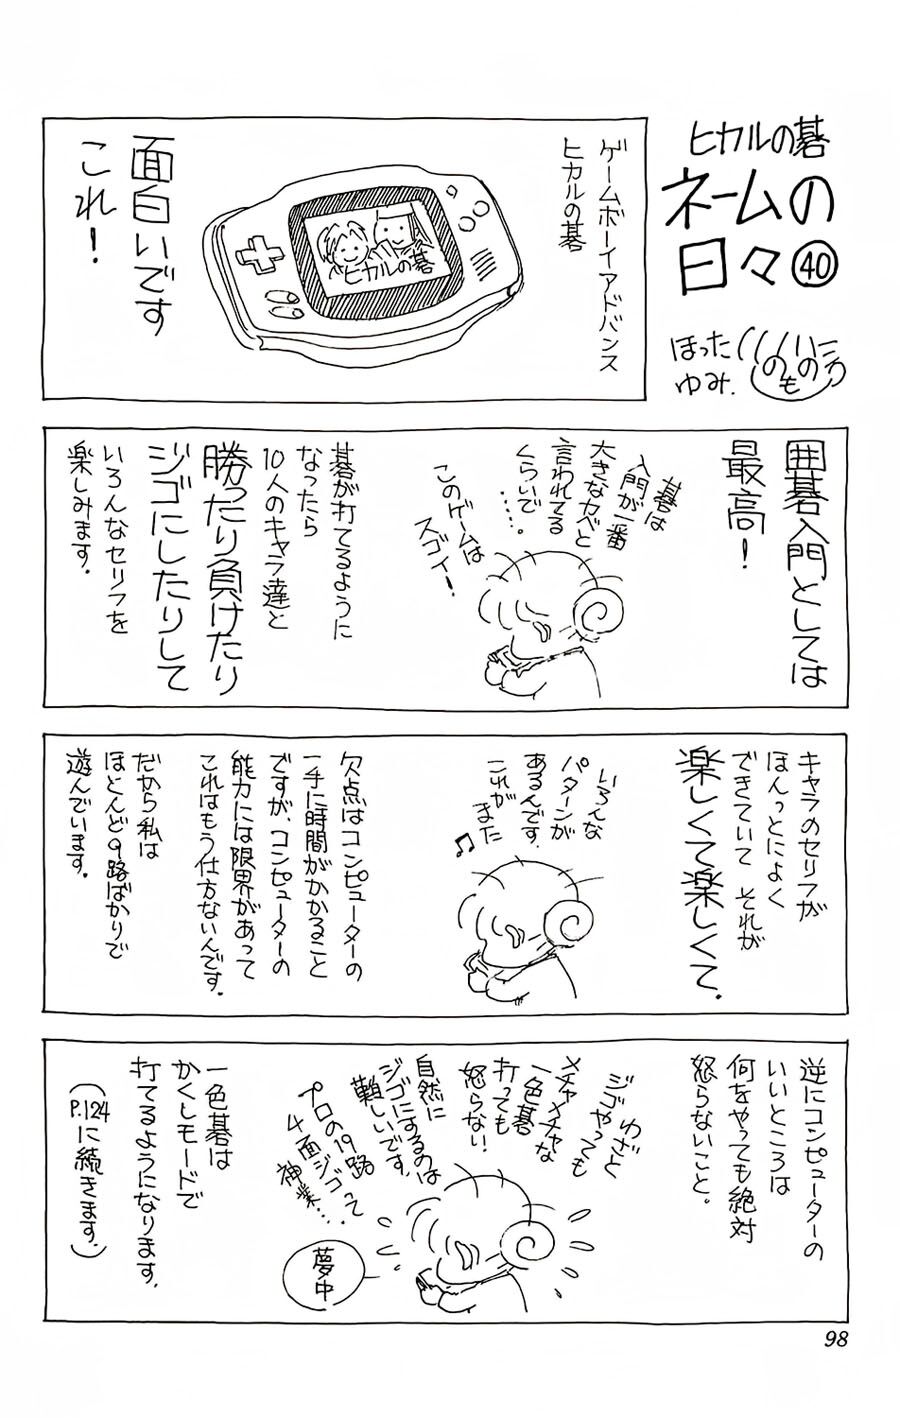 ヒカルの碁
ネームの
日々㊵
ほった
ゆみ.
ゲームボーイアドバンス
ヒカルの碁
ヒカルの碁
面白いです
これ！
囲碁入門としては
最高！
碁は
入門が一番
大きなカベと
言われてる
くらいで
……。
このゲームは
スゴイ！
碁が打てるように
なったら
10人のキャラ達と
勝ったり負けたり
ジゴにしたりして
いろんなセリフを
楽しみます.
キャラのセリフが
ほんっとによく
できていて それが
楽しくて楽しくて.
いろんな
パターンが
あるんです.
これが
また
♫
欠点はコンピューターの
一手に時間がかかること
ですが、コンピューターの
能力には限界があって
これはもう仕方ないんです.
だから私は
ほとんど9路ばかりで
遊んでいます。
逆にコンピューターの
いいところは
何をやっても絶対
怒らないこと。
わざと
ジゴやっても
メチャメチャな
一色碁
打っても
怒らない!
自然に
ジゴにするのは
難しいです.
プロの19路
4面ジゴって
神業….
夢中
一色碁は
かくしモードで
打てるようになります.
(P.124に続きます.)
98